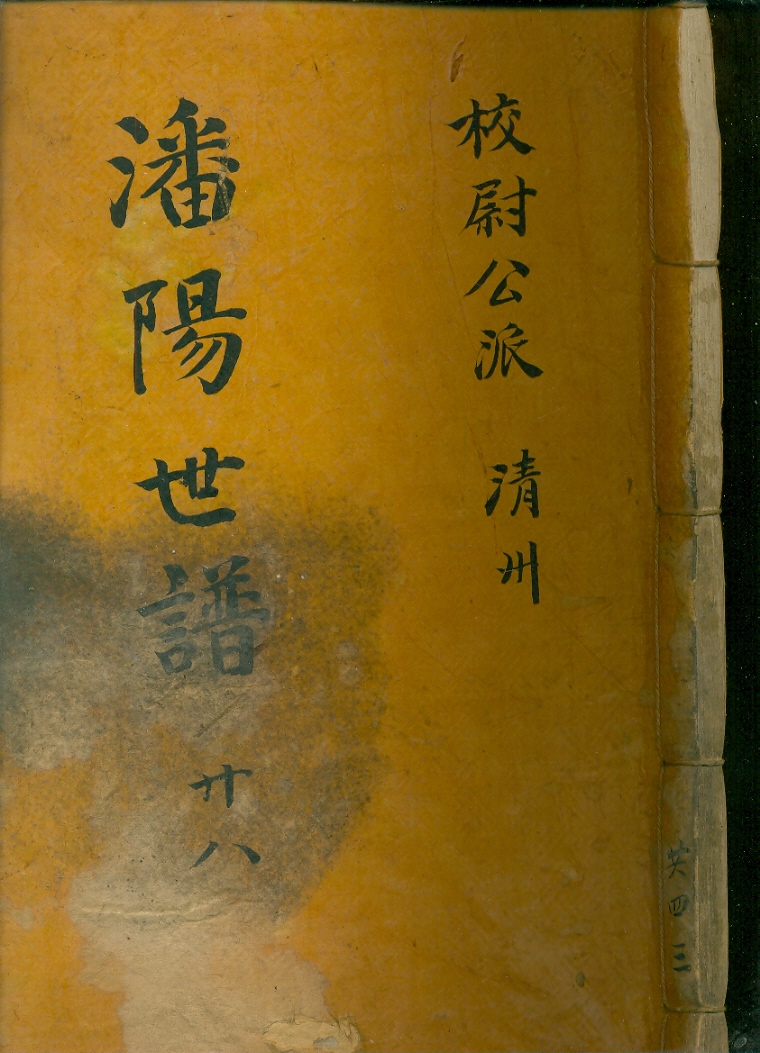 校尉公派 清州
潘陽世譜 廿八
共四三